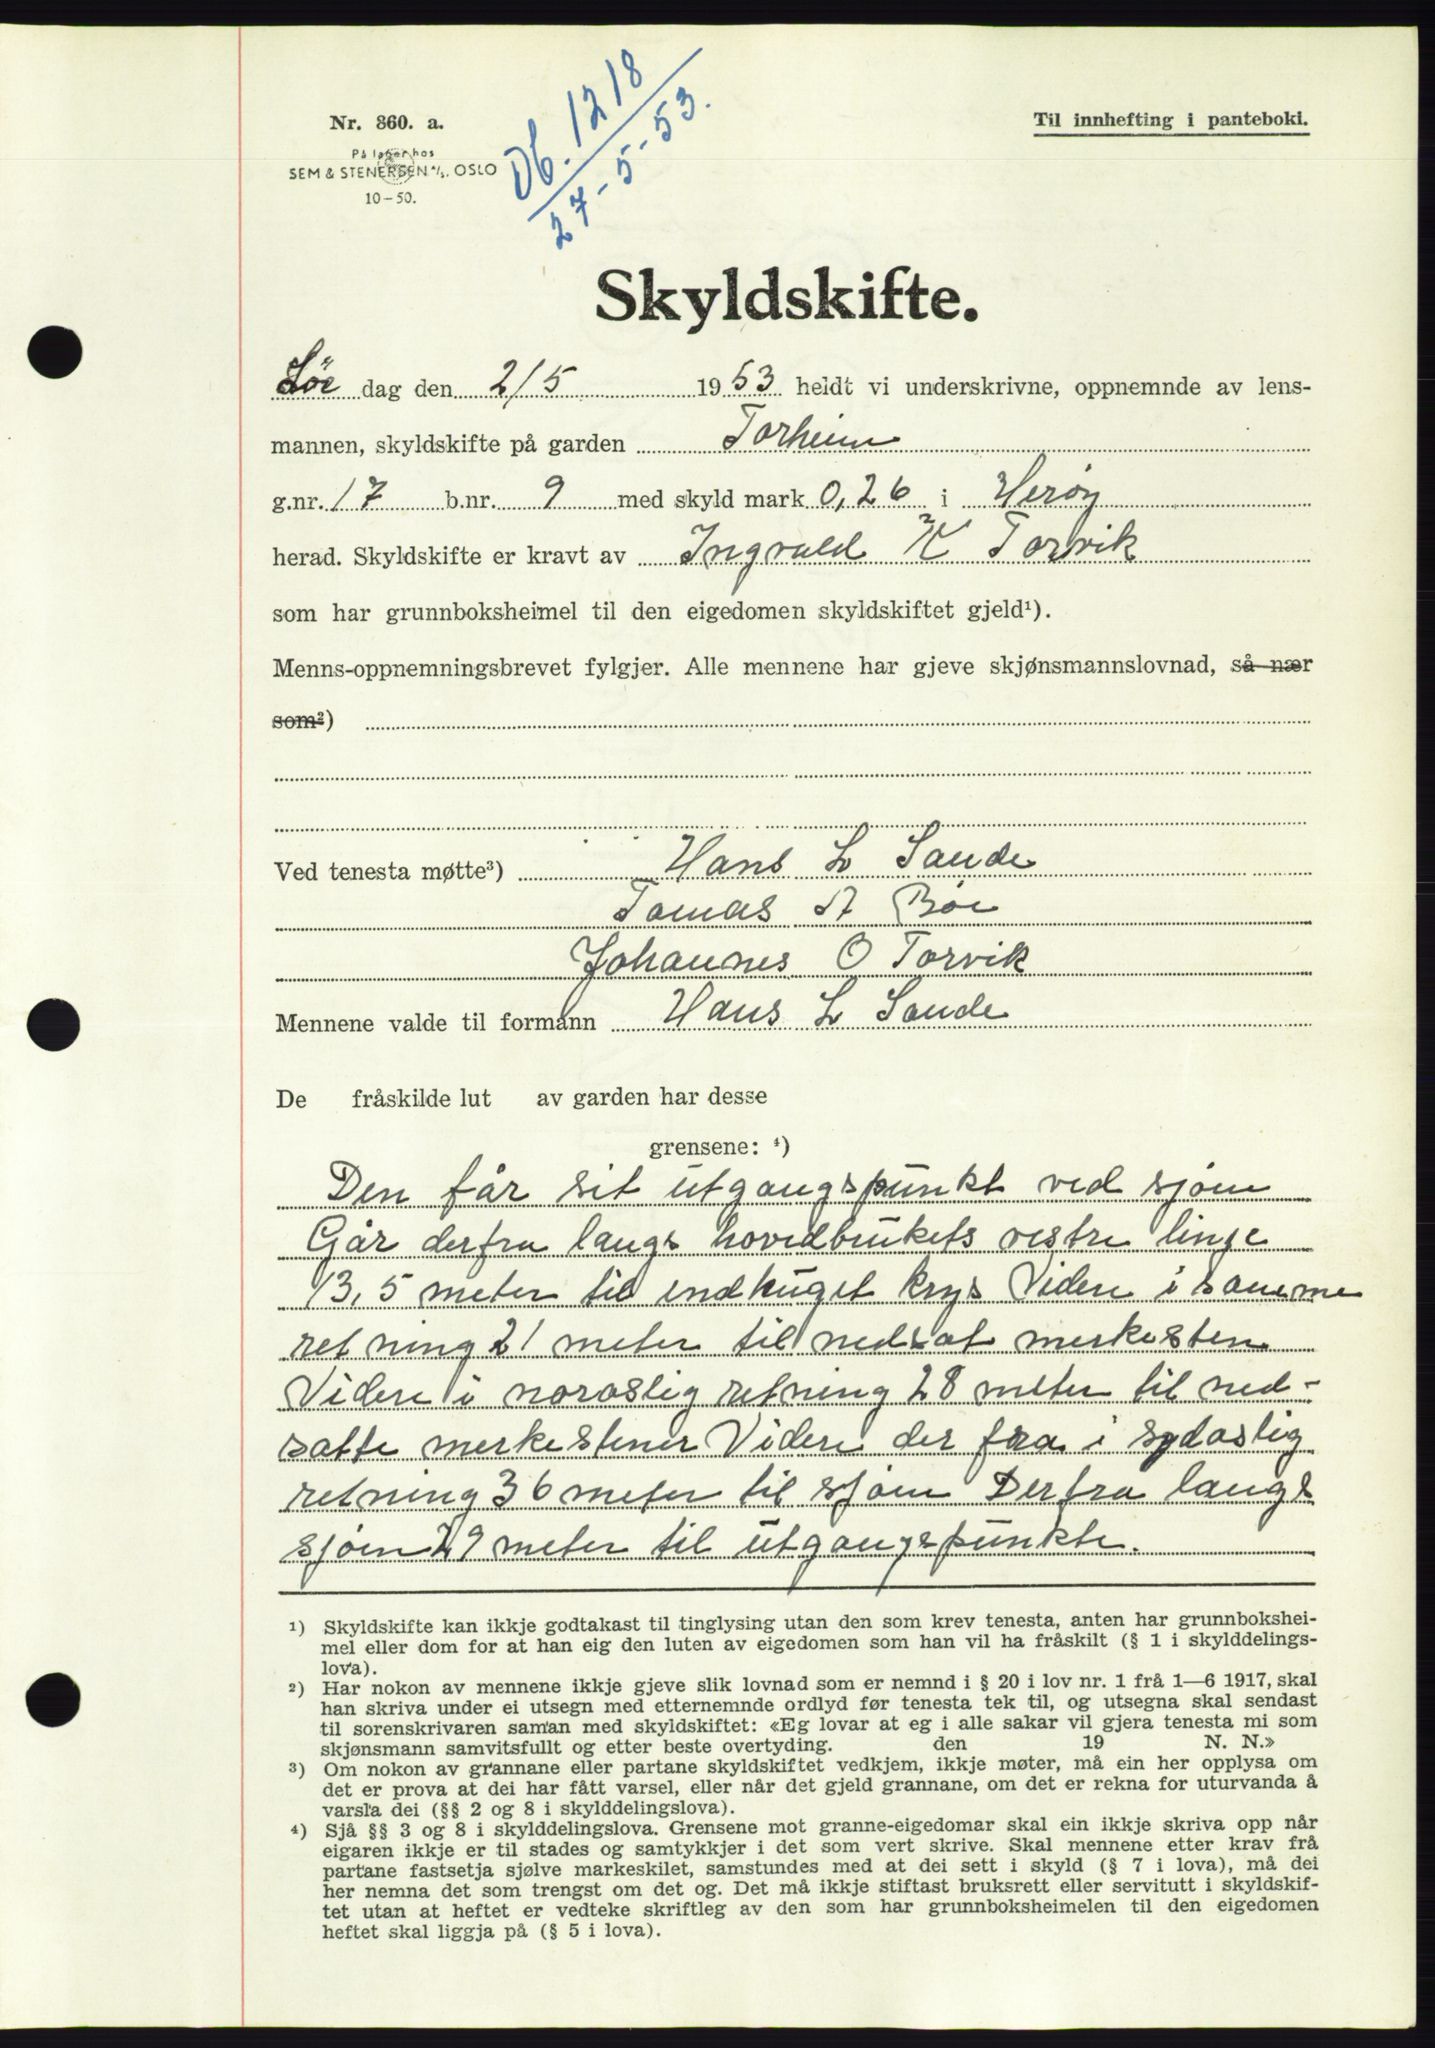 Nr. 360. a.
På lager hos
SEM & STENERSEN A/S, OSLO
10-50.
Db. 1218
27-5-53.
Til innhefting i panteboki.
Skyldskifte.
Lör dag den 2/5 1953 heldt vi underskrivne, oppnemnde av lens-
mannen, skyldskifte på garden Torheim
g.nr. 17 b.nr. 9 med skyld mark 0,26 i Herøy
herad. Skyldskifte er kravt av Ingvald K Torvik
som har grunnboksheimel til den eigedomen skyldskiftet gjeld¹).
Menns-oppnemningsbrevet fylgjer. Alle mennene har gjeve skjønsmannslovnad, så nær
som²)
Ved tenesta møtte³) Hans L Sande
Tomas A Bøe
Johannes O Torvik
Mennene valde til formann Hans L Sande
De fråskilde lut av garden har desse
grensene: ⁴)
Den får sit utgangspunkt ved sjøen
Går derfra langs hovedbrukets vestre linje
13,5 meter til indhuget krys Videre i samme
retning 21 meter til nedsat merkesten
Videre i noraslig retning 28 meter til ned-
satte merkestener Videre der fra i sydaslig
retning 36 meter til sjøen Derfra langs
sjøen 29 meter til utgangspunkte.
¹) Skyldskifte kan ikkje godtakast til tinglysing utan den som krev tenesta, anten har grunnbokshei-
mel eller dom for at han eig den luten av eigedomen som han vil ha fråskilt (§ 1 i skylddelings-
lova).
²) Har nokon av mennene ikkje gjeve slik lovnad som er nemnd i § 20 i lov nr. 1 frå 1—6 1917, skal
han skriva under ei utsegn med etternemnde ordlyd før tenesta tek til, og utsegna skal sendast
til sorenskrivaren saman med skyldskiftet: «Eg lovar at eg i alle sakar vil gjera tenesta mi som
skjønsmann samvitsfullt og etter beste overtyding. den 19 N. N.»
³) Om nokon av grannane eller partane skyldskiftet vedkjem, ikkje møter, må ein her opplysa om
det er prova at dei har fått varsel, eller når det gjeld grannane, om det er rekna for uturvanda å
varsla dei (§§ 2 og 8 i skylddelingslova).
⁴) Sjå §§ 3 og 8 i skylddelingslova. Grensene mot granne-eigedomar skal ein ikkje skriva opp når
eigaren ikkje er til stades og samtykkjer i det som vert skrive. Skal mennene etter krav frå
partane fastsetja sjølve markeskilet, samstundes med at dei sett i skyld (§ 7 i lova), må dei
her nemna det som trengst om det og. Det må ikkje stiftast bruksrett eller servitutt i skyldskif-
tet utan at heftet er vedteke skriftleg av den som har grunnboksheimelen til den eigedomen
heftet skal liggja på (§ 5 i lova).